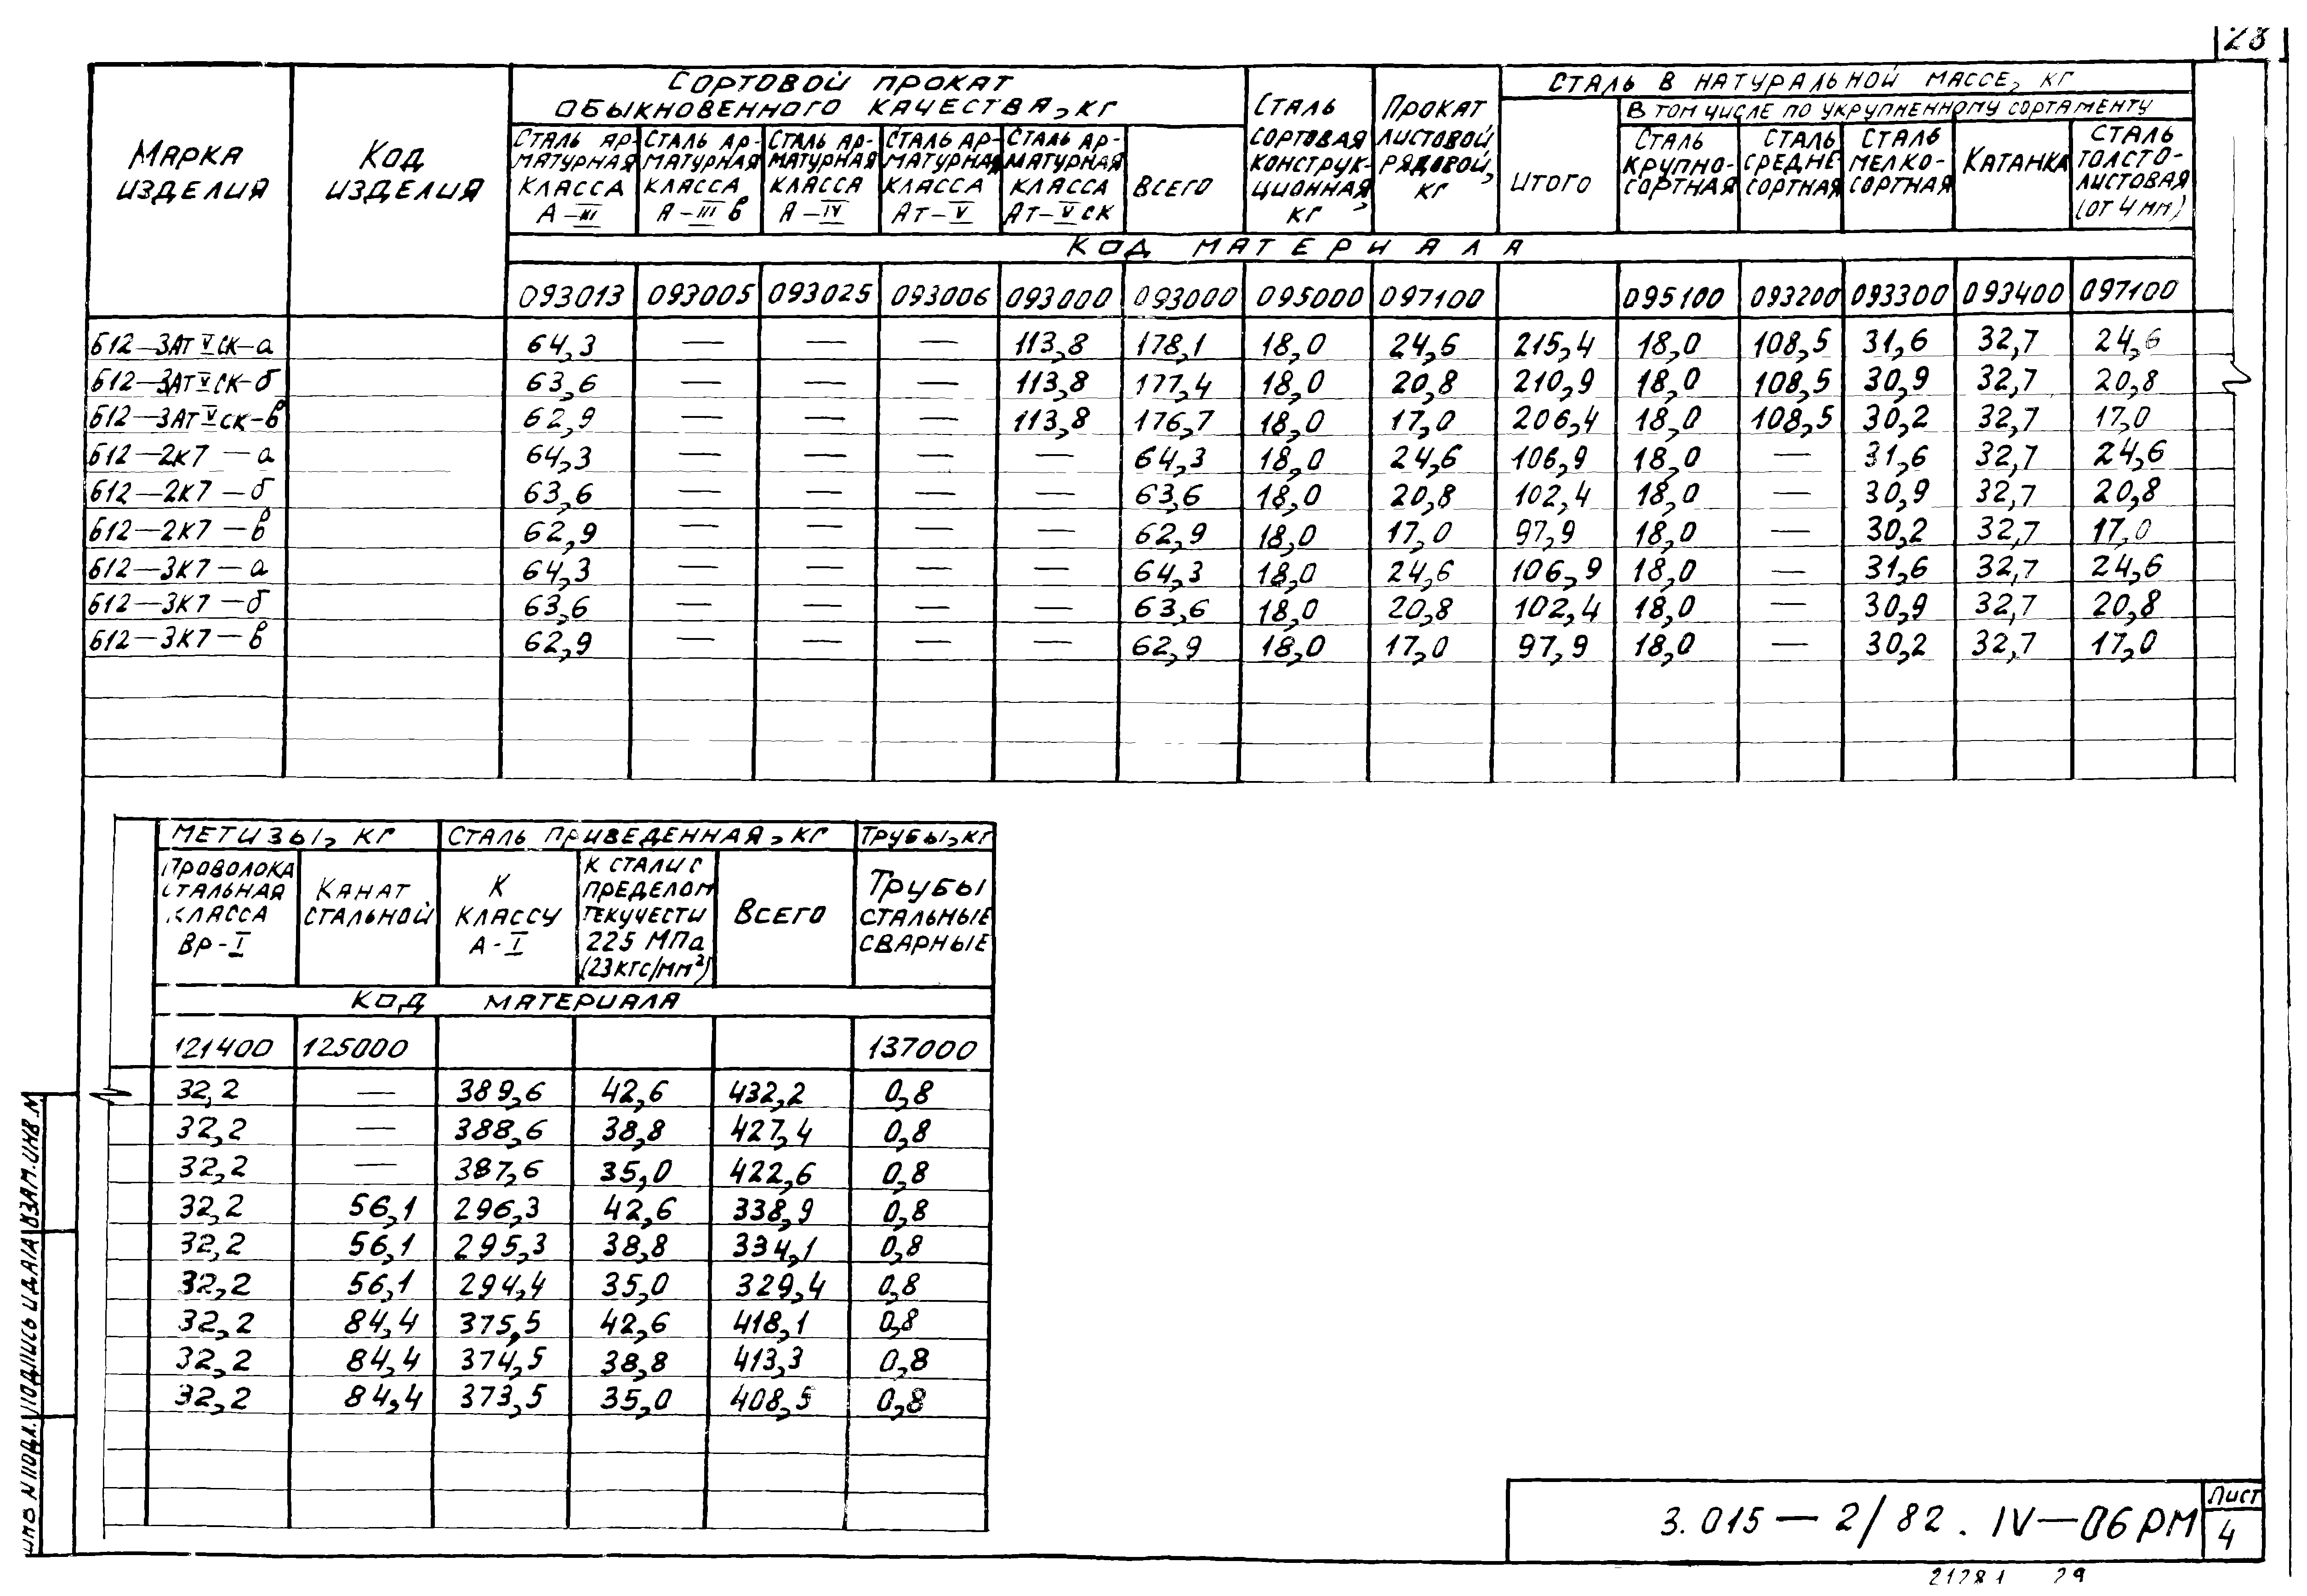 28
Марка изделия | Код изделия | Сортовой прокат обыкновенного качества, кг | Сталь сортовая конструкционная, кг | Прокат листовой рядовой, кг | Сталь в натуральной массе, кг
Итого | В том числе по укрупненному сортаменту
Сталь арматурная класса А-III | Сталь арматурная класса А-IIIв | Сталь арматурная класса А-IV | Сталь арматурная класса Ат-V | Сталь арматурная класса Ат-Vск | Всего | Сталь крупносортная | Сталь среднесортная | Сталь мелкосортная | Катанка | Сталь толстолистовая (от 4 мм)
Код материала
093013 | 093005 | 093025 | 093006 | 093000 | 093000 | 095000 | 097100 | | 095100 | 093200 | 093300 | 093400 | 097100
Б12-3АтVск-а | 64,3 | — | — | — | 113,8 | 178,1 | 18,0 | 24,6 | 215,4 | 18,0 | 108,5 | 31,6 | 32,7 | 24,6
Б12-3АтVск-б | 63,6 | — | — | — | 113,8 | 177,4 | 18,0 | 20,8 | 210,9 | 18,0 | 108,5 | 30,9 | 32,7 | 20,8
Б12-3АтVск-в | 62,9 | — | — | — | 113,8 | 176,7 | 18,0 | 17,0 | 206,4 | 18,0 | 108,5 | 30,2 | 32,7 | 17,0
Б12-2К7-а | 64,3 | — | — | — | — | 64,3 | 18,0 | 24,6 | 106,9 | 18,0 | — | 31,6 | 32,7 | 24,6
Б12-2К7-б | 63,6 | — | — | — | — | 63,6 | 18,0 | 20,8 | 102,4 | 18,0 | — | 30,9 | 32,7 | 20,8
Б12-2К7-в | 62,9 | — | — | — | — | 62,9 | 18,0 | 17,0 | 97,9 | 18,0 | — | 30,2 | 32,7 | 17,0
Б12-3К7-а | 64,3 | — | — | — | — | 64,3 | 18,0 | 24,6 | 106,9 | 18,0 | — | 31,6 | 32,7 | 24,6
Б12-3К7-б | 63,6 | — | — | — | — | 63,6 | 18,0 | 20,8 | 102,4 | 18,0 | — | 30,9 | 32,7 | 20,8
Б12-3К7-в | 62,9 | — | — | — | — | 62,9 | 18,0 | 17,0 | 97,9 | 18,0 | — | 30,2 | 32,7 | 17,0
Метизы, кг | Сталь приведенная, кг | Трубы, кг
Проволока стальная класса Вр-I | Канат стальной | К классу А-I | К стали с пределом текучести 225 МПа (23кгс/мм²) | Всего | Трубы стальные сварные
Код материала
121400 | 125000 | | | | 137000
32,2 | — | 389,6 | 42,6 | 432,2 | 0,8
32,2 | — | 388,6 | 38,8 | 427,4 | 0,8
32,2 | — | 387,6 | 35,0 | 422,6 | 0,8
32,2 | 56,1 | 296,3 | 42,6 | 338,9 | 0,8
32,2 | 56,1 | 295,3 | 38,8 | 334,1 | 0,8
32,2 | 56,1 | 294,4 | 35,0 | 329,4 | 0,8
32,2 | 84,4 | 375,5 | 42,6 | 418,1 | 0,8
32,2 | 84,4 | 374,5 | 38,8 | 413,3 | 0,8
32,2 | 84,4 | 373,5 | 35,0 | 408,5 | 0,8
Инв N подл. Подпись и дата Взам. инв. N
3.015-2/82.IV-06РМ
Лист
4
21281 29